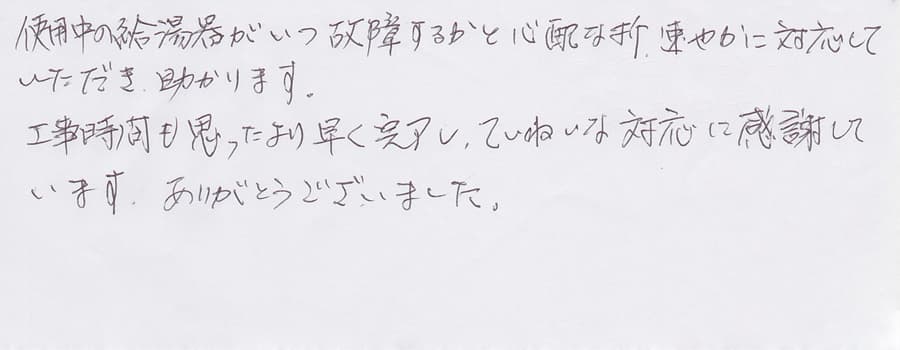 使用中の給湯器がいつ故障するかと心配な折、速やかに対応して
いただき、助かります。
工事時間も思ったより早く完了し、ていねいな対応に感謝して
います。ありがとうございました。